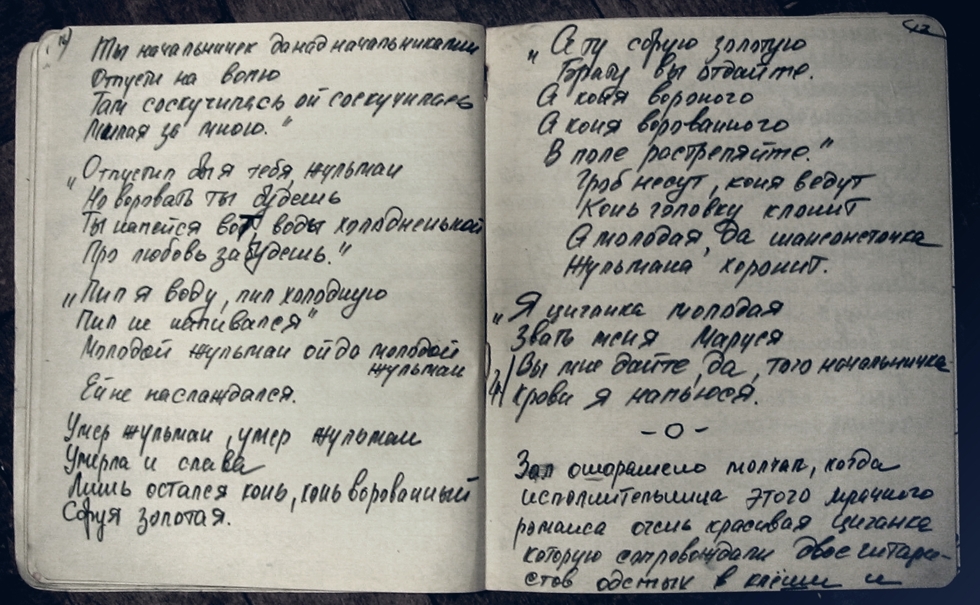 Ты начальничек да над начальниками
Отпусти на волю
Там соскучилась ой соскучилась
Милая за мною."
"Отпустил бы я тебя, жульман
Но воровать ты будешь
Ты напейся вот, воды холодненькой
Про любовь забудешь."
"Пил я воду, пил холодную
Пил не напивался"
Молодой жульман ой да молодой
жульман
Ей не наслаждался.
Умер жульман, умер жульман
Умерла и слава
Лишь остался конь, конь ворованный
Сбруя золотая.
"А ту сбрую золотую
Брату вы отдайте.
А коня вороного
А коня ворованного
В поле расстреляйте."
Гроб несут, коня ведут
Конь головку клонит
А молодая, да шансонеточка
Жульмана хоронит.
"Я циганка молодая
Звать меня Маруся
Вы мне дайте, да, того начальничка
Крови я напьюся.
-0-
Зал ошарашено молчал, когда
исполнительница этого мрачного
романса очень красивая циганка
которую сопровождали двое гитари-
стов одетых в клёши и